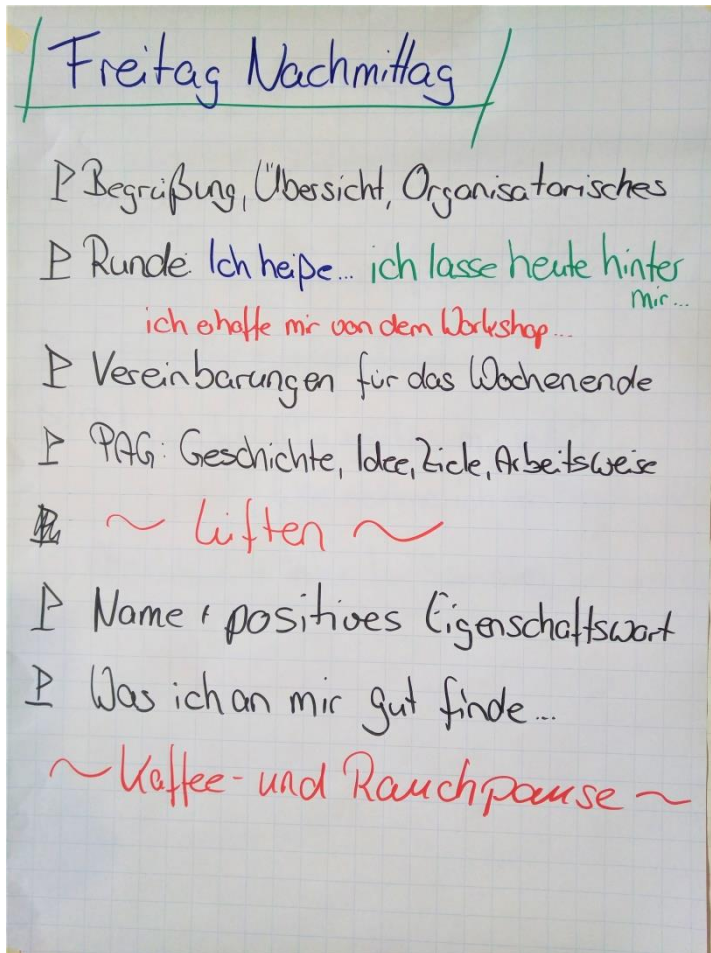 Freitag Nachmittag
Begrüßung, Übersicht, Organisatorisches
Runde: Ich heiße... ich lasse heute hinter
mir...
ich ehoffe mir von dem Workshop...
Vereinbarungen für das Wochenende
PAG: Geschichte, Idee, Ziele, Arbeitsweise
~ Lüften ~
Name + positives Eigenschaftswort
Was ich an mir gut finde...
~ Kaffee- und Rauchpause ~